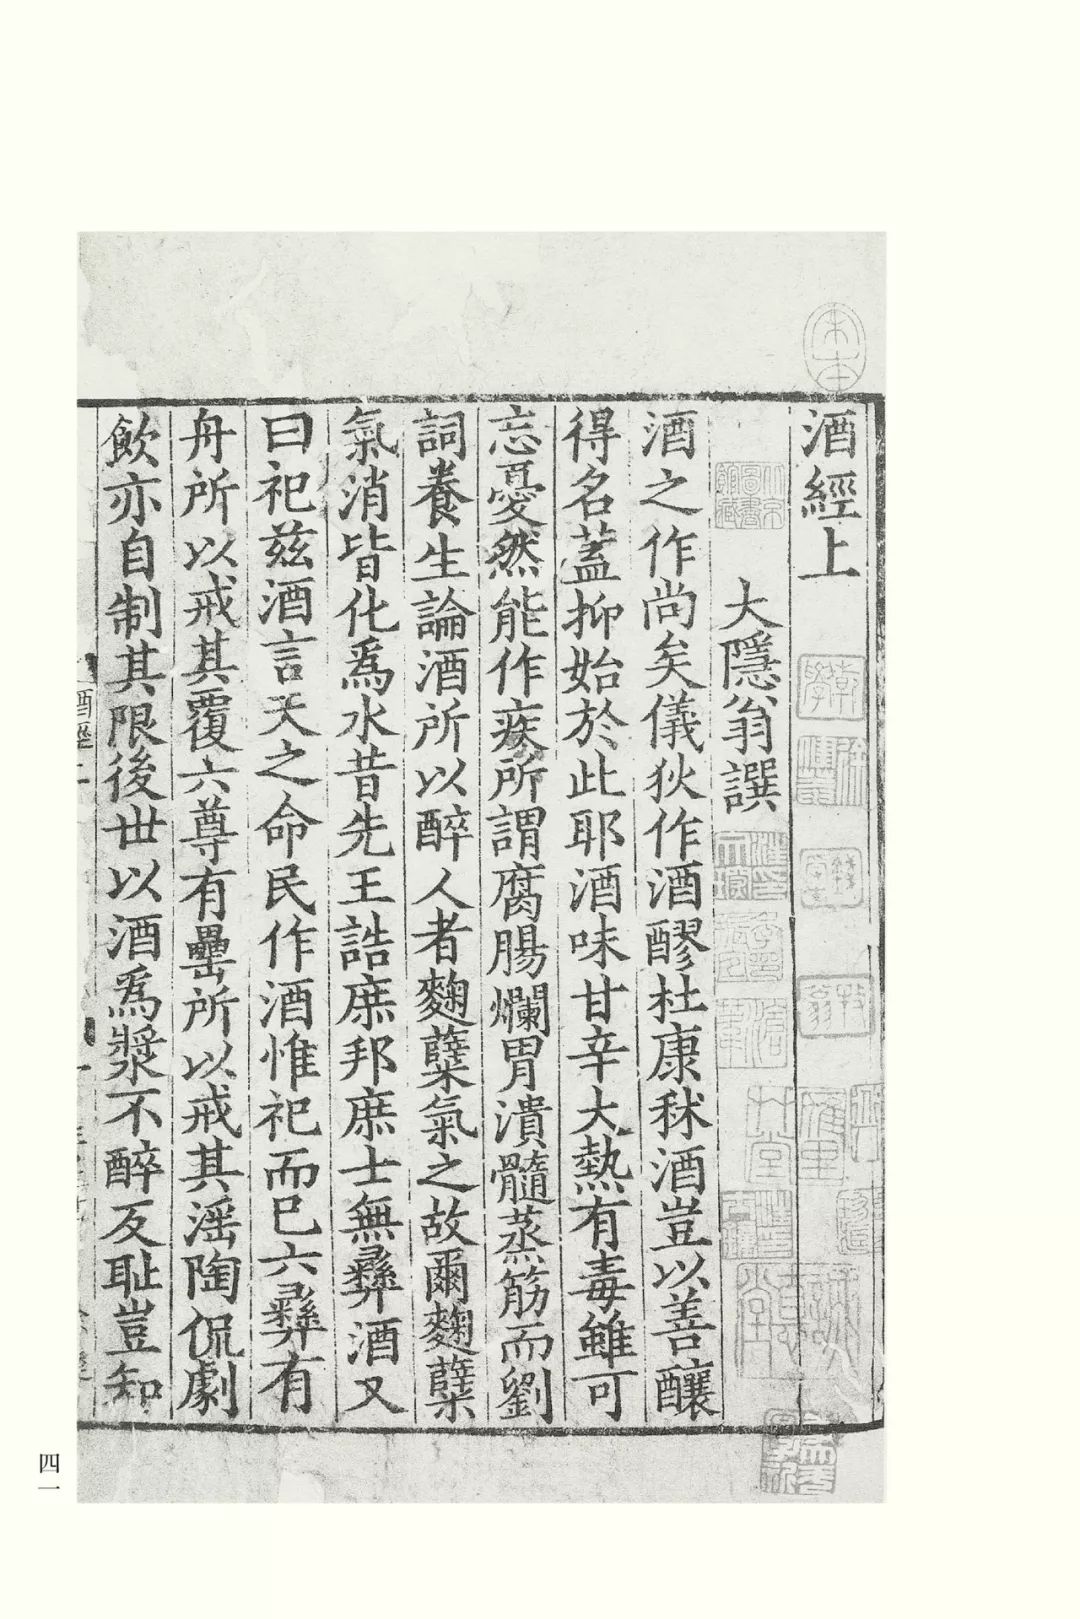 酒經上
大隱翁譔
酒之作尚矣儀狄作酒醪杜康秫酒豈以善釀
得名蓋抑始於此耶酒味甘辛大熱有毒雖可
忘憂然能作疾所謂腐腸爛胃潰髓蒸筋而劉
詞養生論酒所以醉人者麴蘖氣之故爾麴蘖
氣消皆化爲水昔先王誥庶邦庶士無彝酒又
曰祀茲酒言天之命民作酒惟祀而已六彝有
舟所以戒其覆六尊有罍所以戒其淫陶侃劇
飲亦自制其限後世以酒爲漿不醉反恥豈知
四一